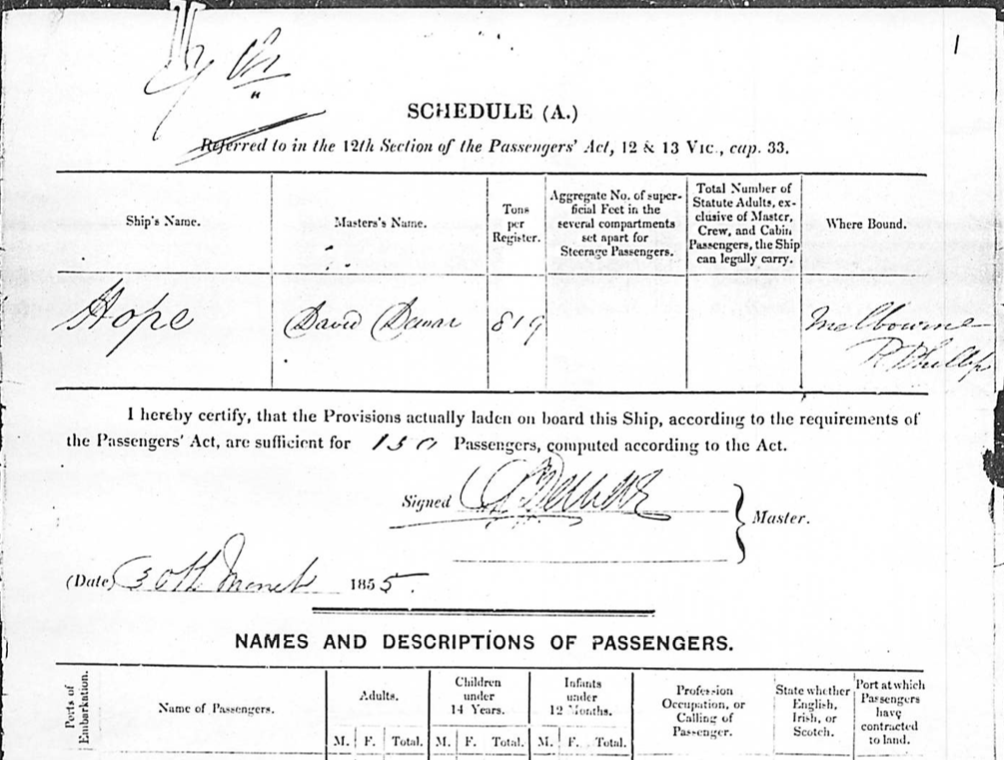 1
SCHEDULE (A.)
Referred to in the 12th Section of the Passengers' Act, 12 & 13 Vic., cap. 33.
Ship's Name.
Masters's Name.
Tons
per
Register.
Aggregate No. of super-
ficial Feet in the
several compartments
set apart for
Steerage Passengers.
Total Number of
Statute Adults, ex-
clusive of Master,
Crew, and Cabin
Passengers, the Ship
can legally carry.
Where Bound.
Hope
David
819
Melbourne
P. Phillip
I hereby certify, that the Provisions actually laden on board this Ship, according to the requirements of
the Passengers' Act, are sufficient for 150 Passengers, computed according to the Act.
Signed
Master.
(Date) 30th 1855.
NAMES AND DESCRIPTIONS OF PASSENGERS.
Ports of
Embarkation.
Name of Passengers.
Adults.
M. F. Total.
Children
under
14 Years.
M. F. Total.
Infants
under
12 Months.
M. F. Total.
Profession
Occupation, or
Calling of
Passenger.
State whether
English,
Irish, or
Scotch.
Port at which
Passengers
have
contracted
to land.